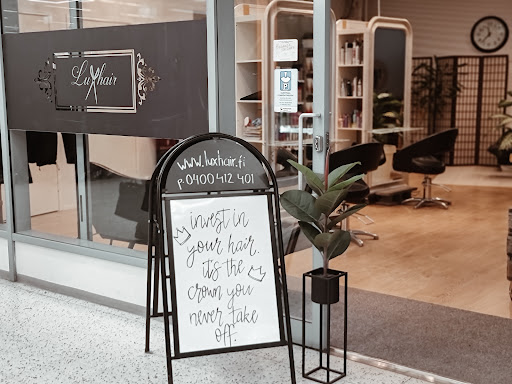 Luxhair
www.luxhair.fi
p. 0400 412 401
invest in
your hair.
it's the
crown you
never take
off.